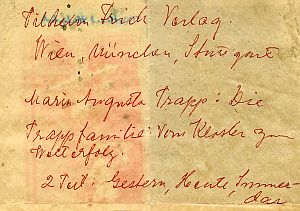 Wilhelm Frick Verlag.
Wien, München, Stuttgart
Maria Augusta Trapp: Die
Trappfamilie: Vom Kloster zum
Welterfolg.
2 Teil: Gestern, Heute, Immer-
dar